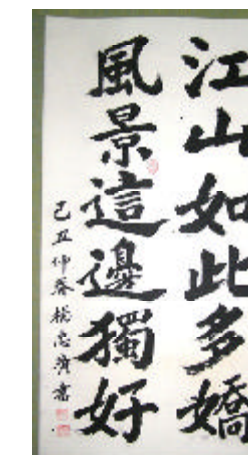 江山如此多嬌
風景這邊獨好
己丑仲春楊忠濱書